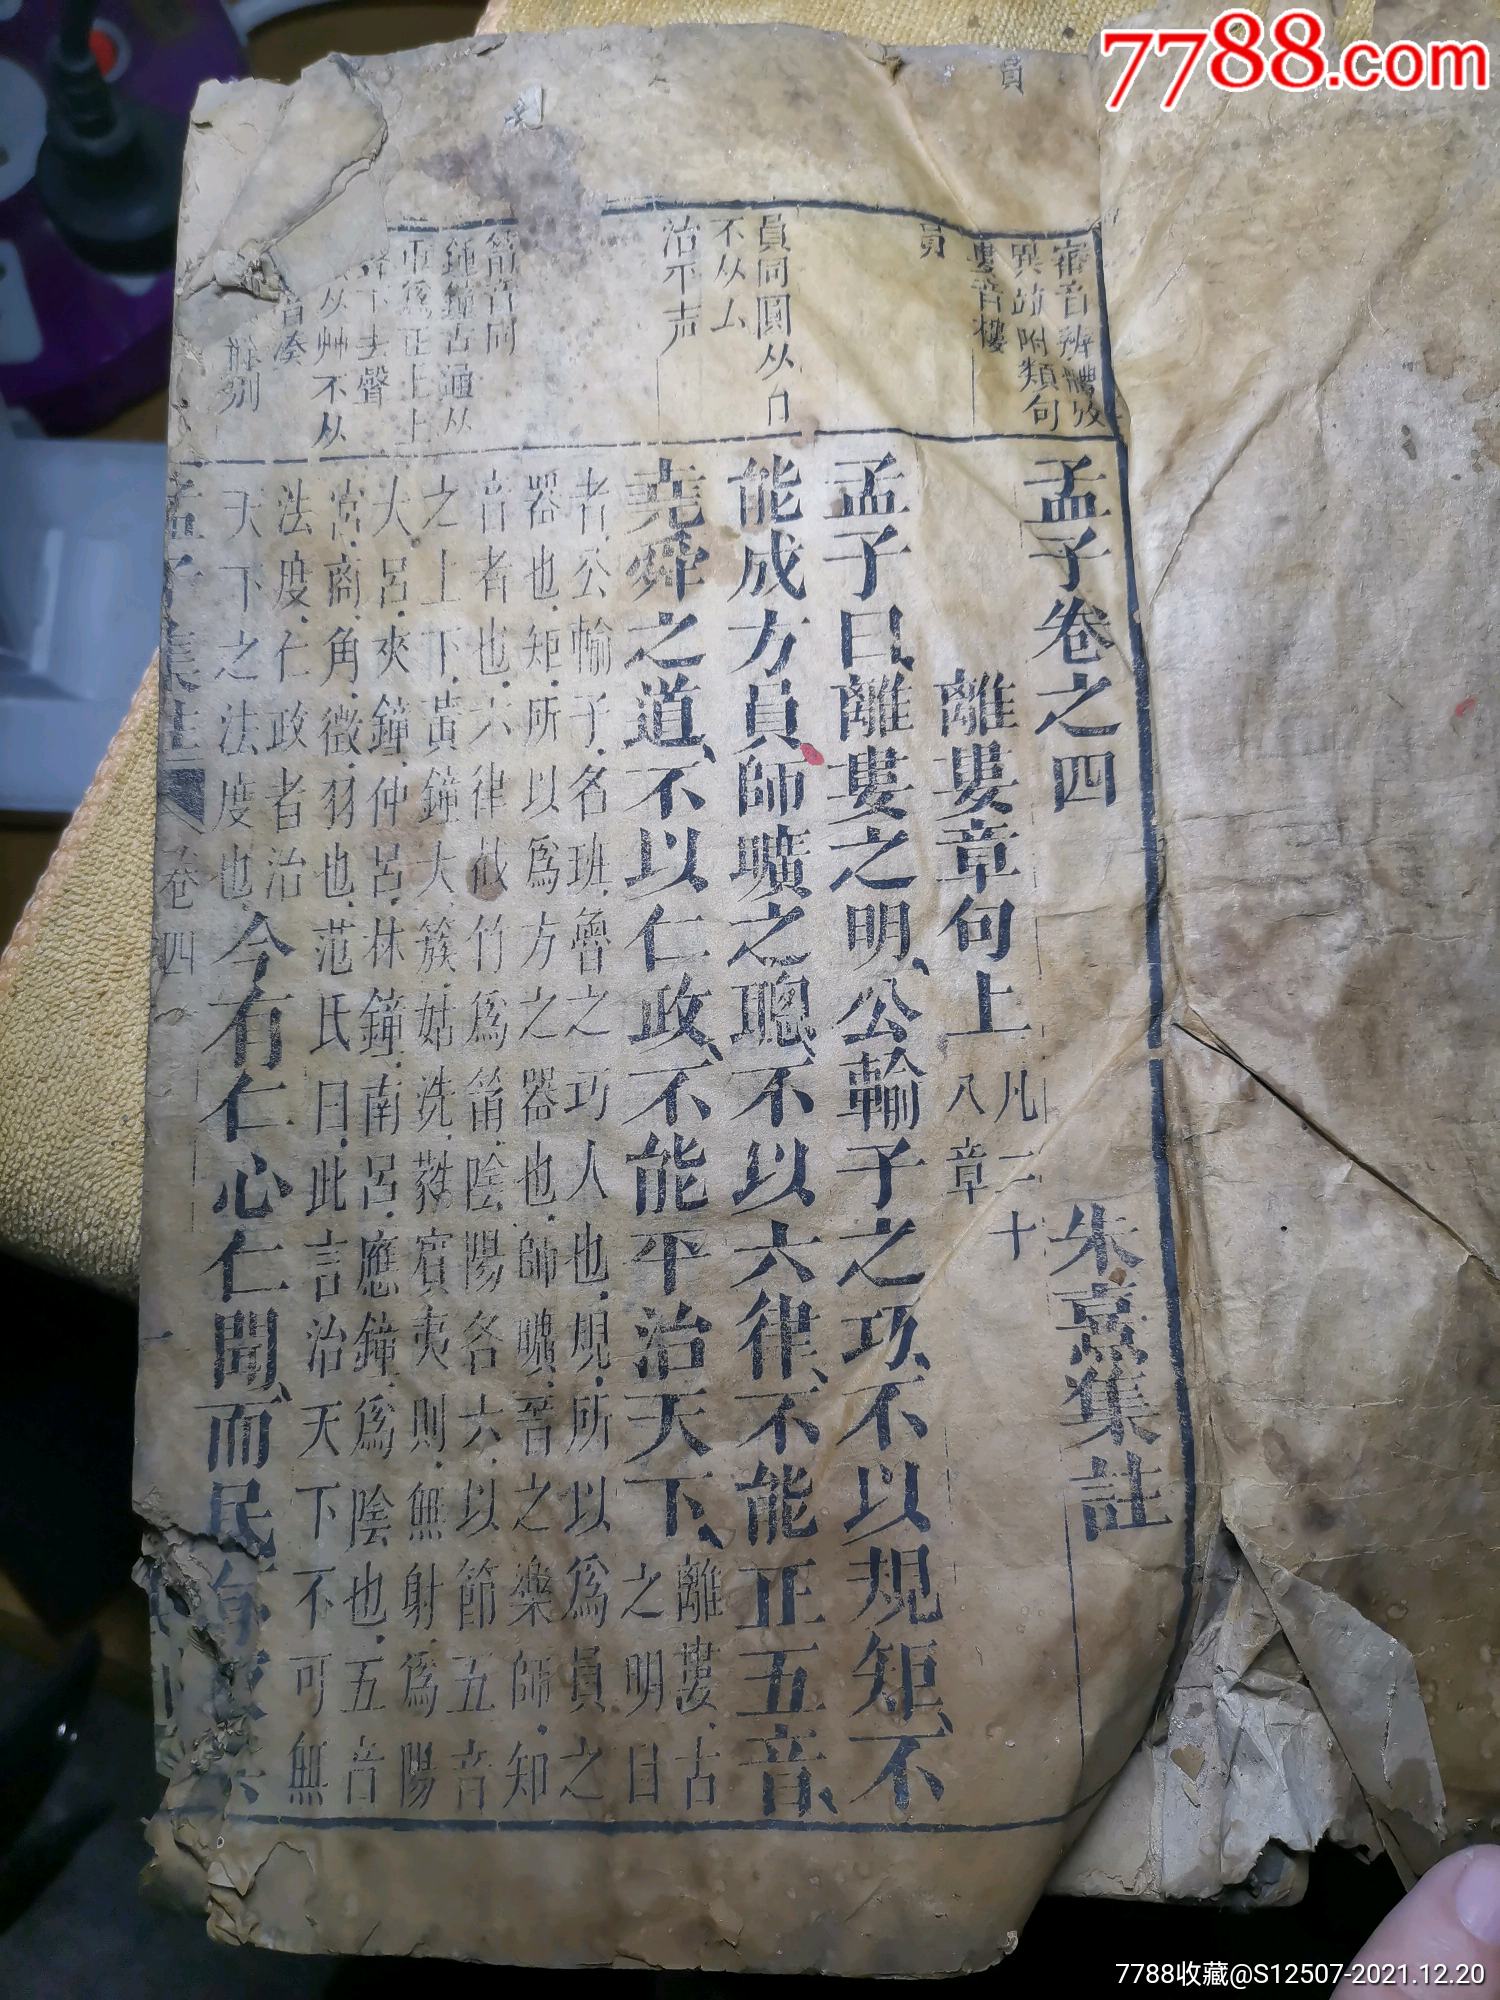 7788.com
審音辨體攷
異竝附類句
婁音樓
員
員同圓从口
不从厶
治平声
箭音同
鍾鐘古通从
重爲正上上
聲下去聲
从艸不从
音湊
孟子卷之四
朱熹集註
離婁章句上
凡二十
八章
孟子曰離婁之明、公輸子之巧、不以規矩、不
能成方員、師曠之聰、不以六律、不能正五音、
堯舜之道、不以仁政、不能平治天下、
離婁、古
之明目
者、公輸子、名班、魯之巧人也、規、所以爲員之
器也、矩、所以爲方之器也、師曠、晉之樂師、知
音者也、六律、截竹爲筩、陰陽各六、以節五音
之上下、黃鐘、大簇、姑洗、蕤賓、夷則、無射、爲陽
大呂、夾鐘、仲呂、林鐘、南呂、應鐘、爲陰也、五音
宮、商、角、徵、羽也、范氏曰、此言治天下不可無
法度、仁政者治
天下之法度也、
今有仁心仁聞、而民
孟子集註
卷四
一
7788收藏@S12507-2021.12.20